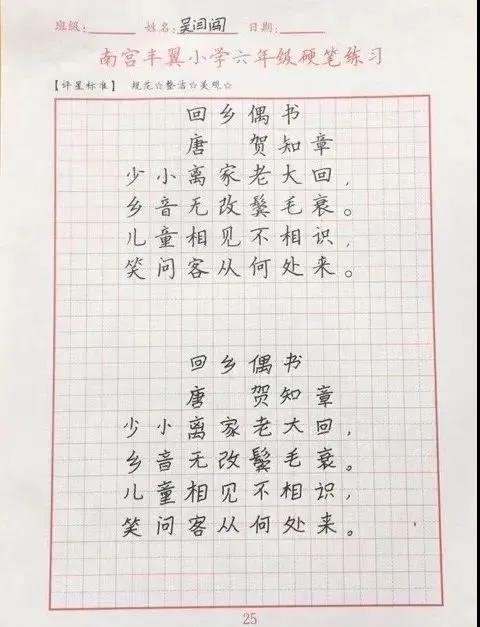 班级: 姓名:吴闫闯 日期:
南宫丰翼小学六年级硬笔练习
【评星标准】 规范☆整洁☆美观☆
回乡偶书
唐 贺知章
少小离家老大回,
乡音无改鬓毛衰。
儿童相见不相识,
笑问客从何处来。
回乡偶书
唐 贺知章
少小离家老大回,
乡音无改鬓毛衰。
儿童相见不相识,
笑问客从何处来。
25